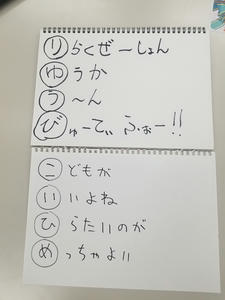 りらくぜーしょん
ゆうか
う〜ん
びゅーてぃふぉー!!
こどもが
いいよね
ひらたいのが
めっちゃよい